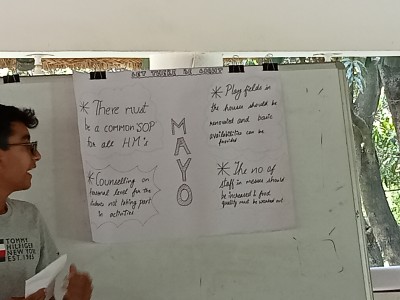 * There must
be a COMMON SOP
for all H.M's
* Counselling on
personal level for the
not taking part
in activities
MAYO
* Play fields in
the houses should be
renovated and basic
availabilities can be
provided
* The no of
staff in messes should
be increased & food
quality must be worked out
TOMMY
HILFIGER
NEW YORK
EST. 1985